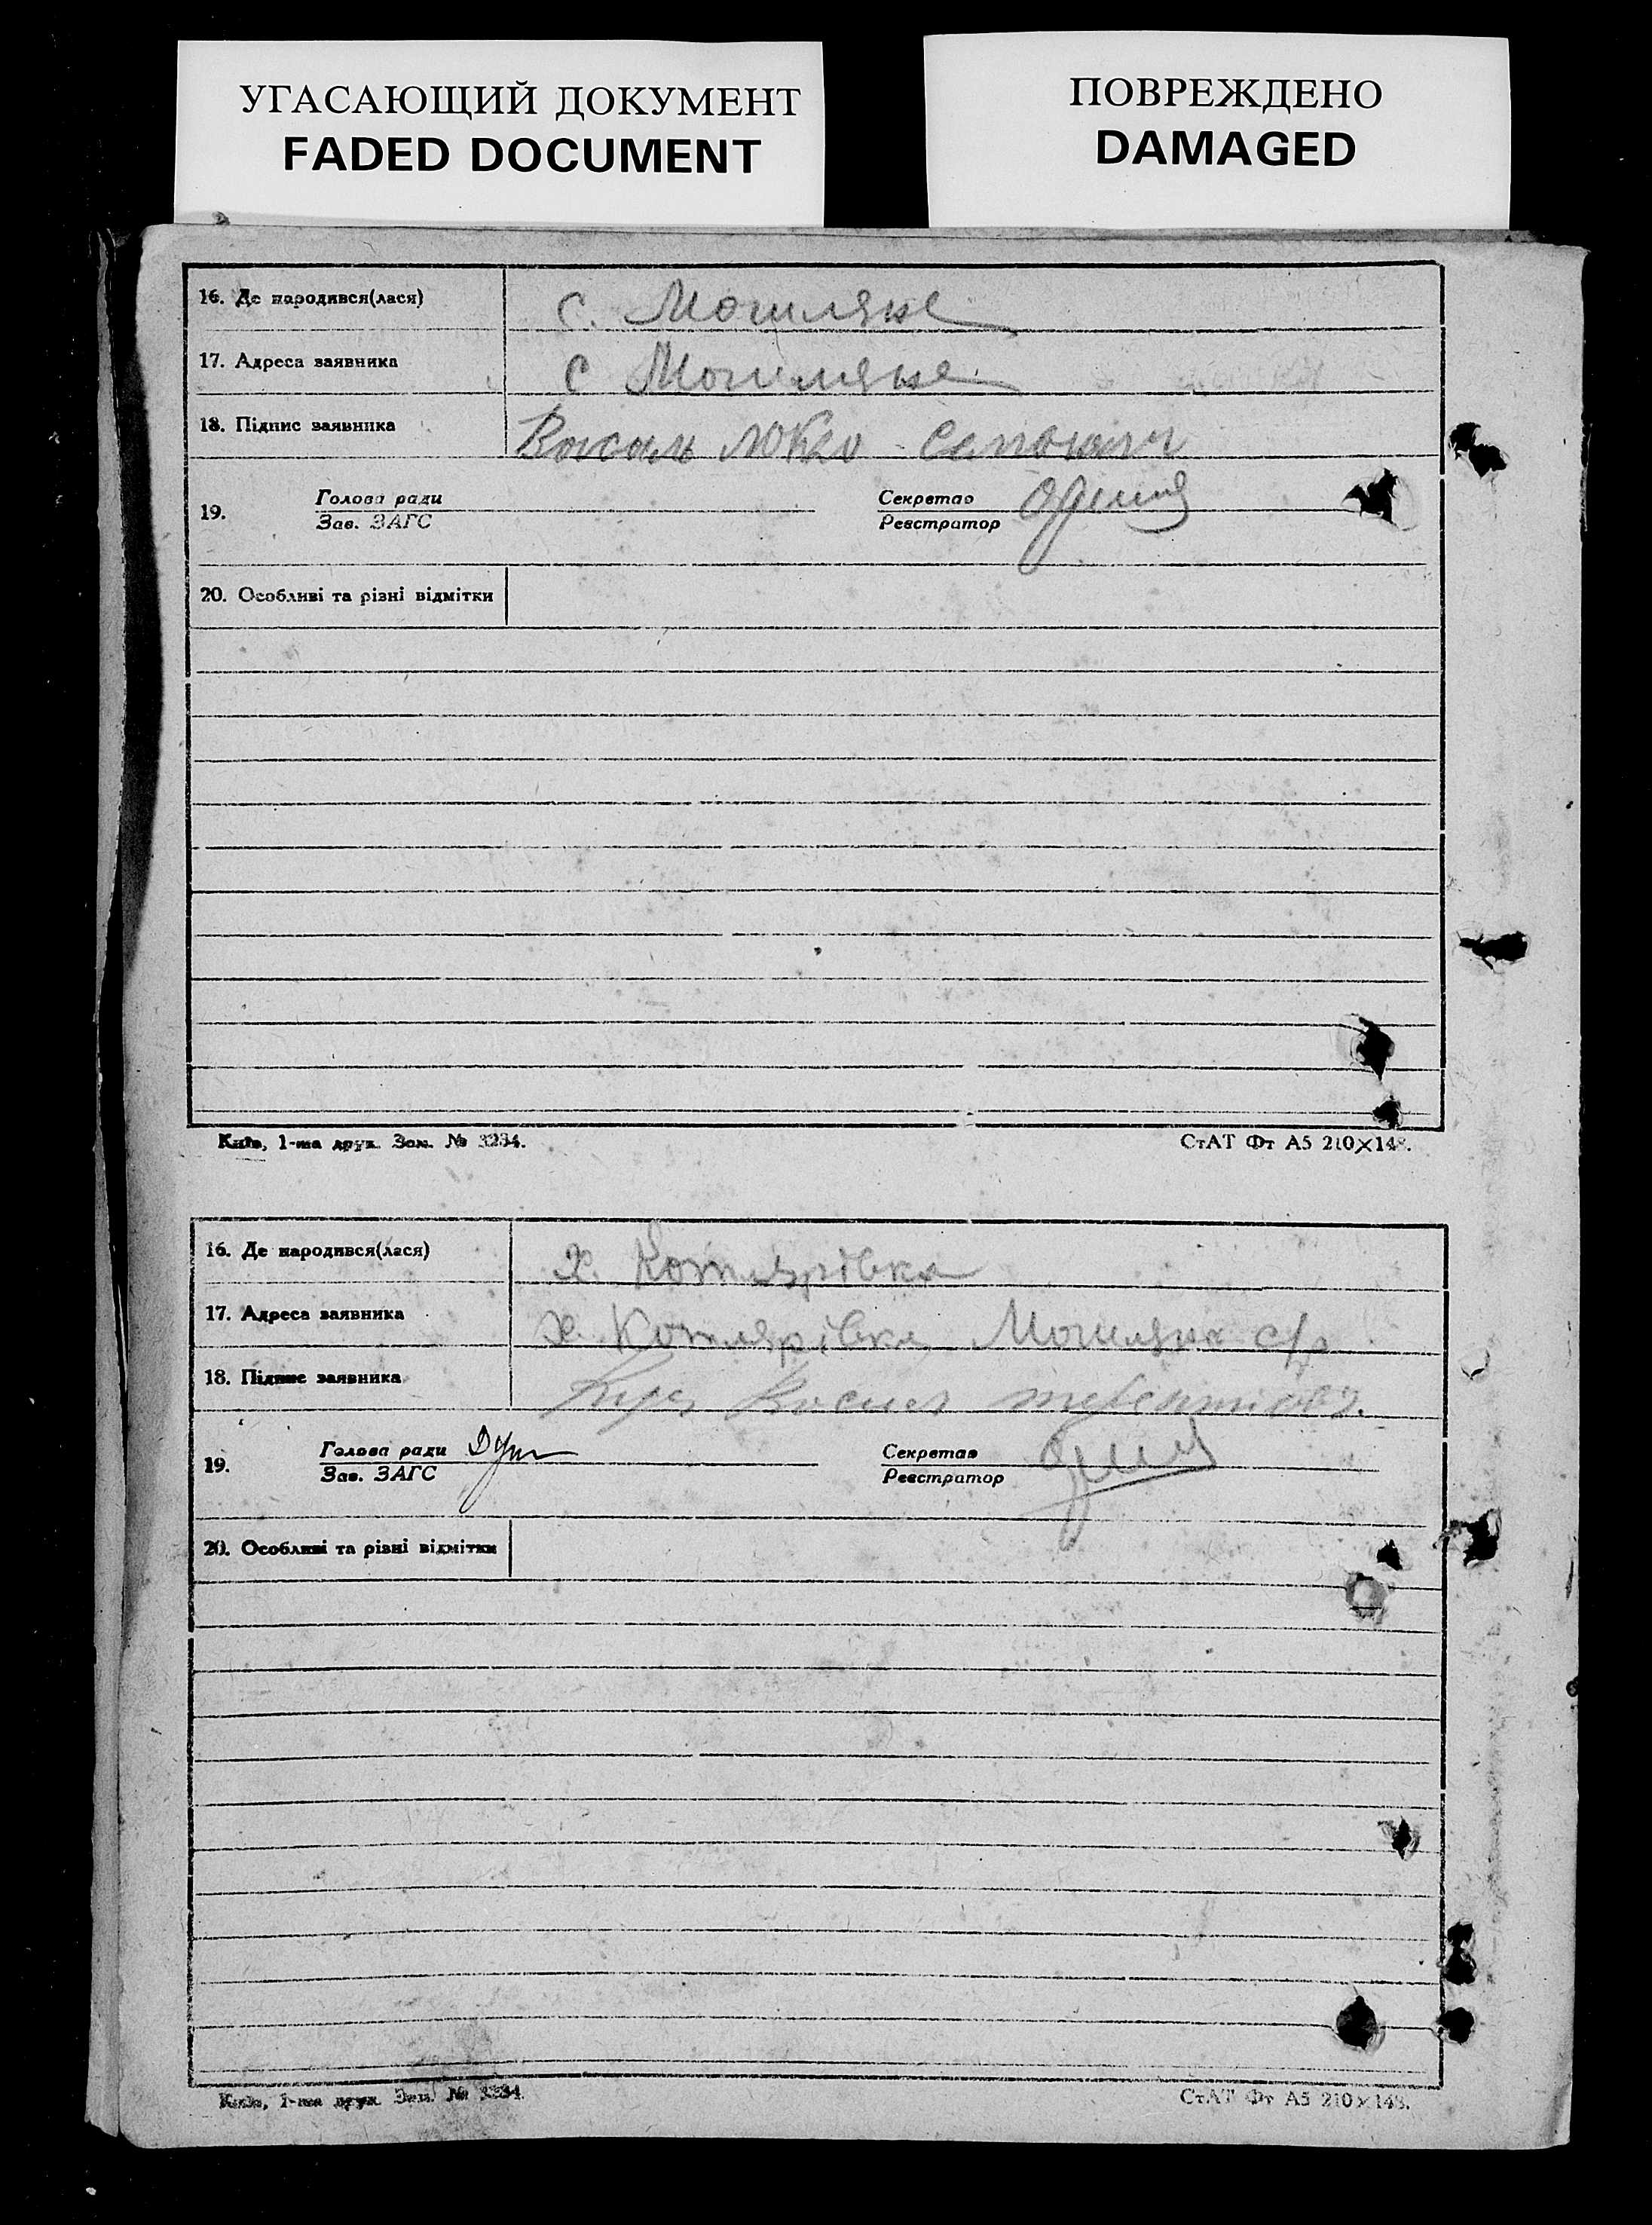 УГАСАЮЩИЙ ДОКУМЕНТ
FADED DOCUMENT
ПОВРЕЖДЕНО
DAMAGED
16. Де народився(лася) с. Могиляне
17. Адреса заявника с Могиляне
18. Підпис заявника
19. Голова ради Секретар
Зав. ЗАГС Реєстратор
20. Особливі та різні відмітки
Київ, 1-ша друк. Зам. № 3234. СтАТ Фт А5 210×148.
16. Де народився(лася) х. Котлярівка
17. Адреса заявника х. Котлярівка, Могиляне с/р
18. Підпис заявника
19. Голова ради Секретар
Зав. ЗАГС Реєстратор
20. Особливі та різні відмітки
Київ, 1-ша друк. Зам. № 3234. СтАТ Фт А5 210×148.